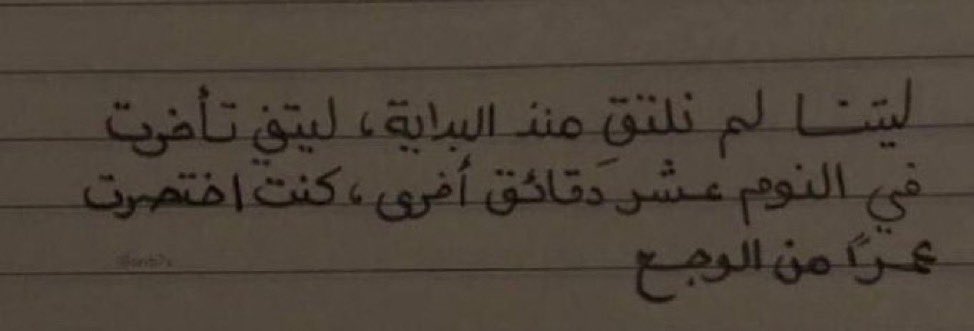 ليتنا لم نلتق منذ البداية، ليتني تأخرت
في النوم عشر دَقائق أُخرى، كنت اختصرت
عمرًا من الوجع